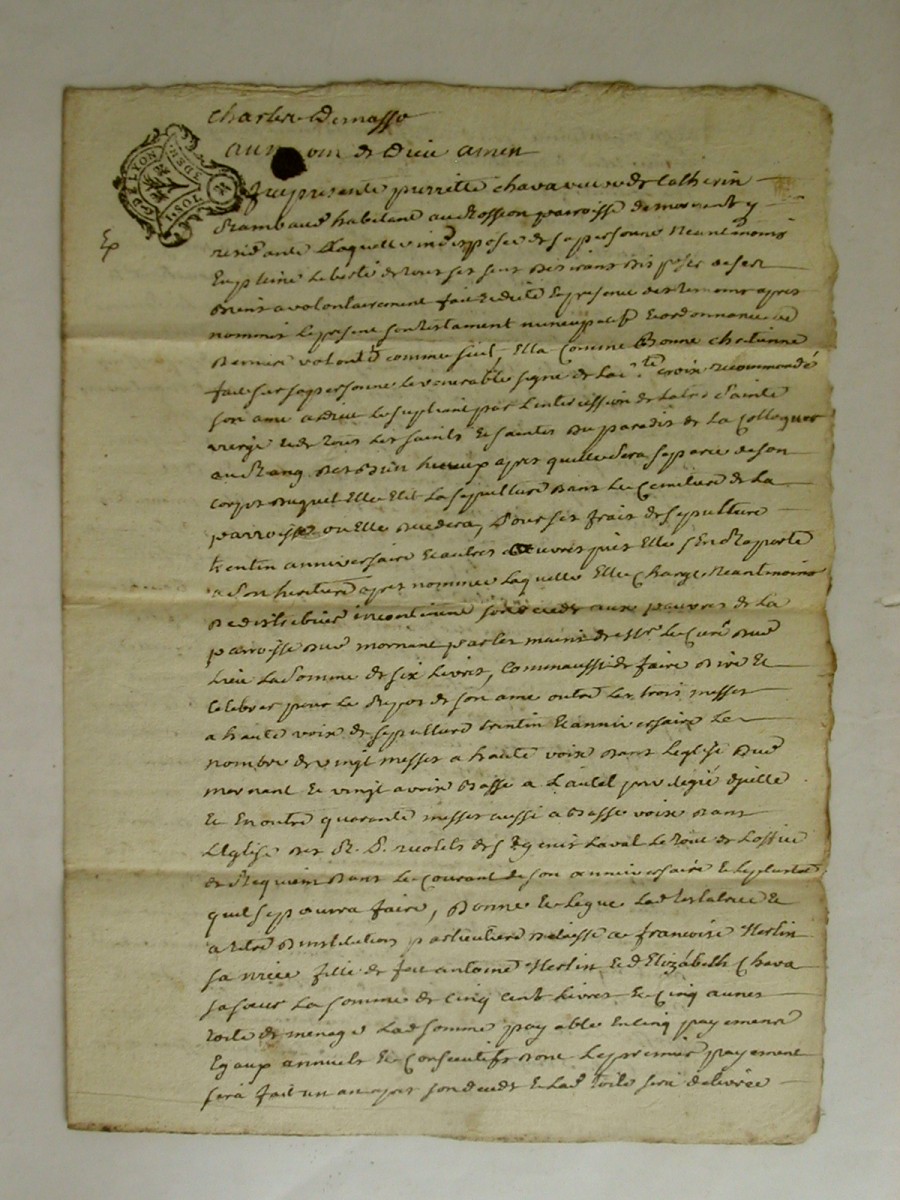 Charles Demasso
au nom de Dieu amen
fut presente pierrette chava veuve de Catherin
Rambaud habitant au Rosseon parroisse de mornant y
residante Laquelle indisposée de sa personne Neantmoins
En pleine Liberté de tous ses sens desirant disposer de ses
Biens a volontairement fait et dicté En presence des temoins apres
nommés Le present son testament nuncupatif Et ordonnance de
derniere volonté comme suit, Ella Comme Bonne chretienne
fait sur sa personne le venerable signe de La ste croix recommandé
son ame a dieu Le supliant par L'intercession de La tres Sainte
vierge Et de tous Les saints Et saintes du paradis de La Colloquer
au Rang des Bien heureux apres quelle sera separée de son
corps duquel Elle Elit La sepulture dans Le Cemetiere de La
parroisse ou Elle decedera, Pour ses frais de sepulture
trentin anniversaire Et autres oeuvres pies Elle s'En Raporte
a Son heritiere apres nommée Laquelle Elle Charge Neantmoins
de distribuer incontinent son deceds aux pauvres de La
parroisse dud mornant par les mains de Mr Le Curé dud
Lieu La Somme de six Livres, Comme aussi de faire dire Et
Celebrer pour Le Repos de son ame outre Les trois messes
a haute voix de sepulture trentin Et anniversaire Le
nombre de vingt messes a haute voix dans L'eglise dud
mornant Et vingt a voix Basse a L'autel privilegié d'icelle
Et En outre quarante messes aussi a Basse voix dans
L'Eglise des R. P. recolets de St Genis Laval Le tout de L'office
de Requiem dans Le Courant de son anniversaire Et Le plustot
quil se pourra faire, Donne Et Legue Lad testatrice Et
a titre D'institution particuliere delaisse a francoise Merlin
sa niece fille de feu antoine Merlin Et d'Elizabeth Chava
sa soeur La somme de Cinq Cent Livres Et Cinq aunes
toile de menage Lad somme payable En Cinq payements
Egaux annuels Et Consecutifs dont Le premier payement
sera fait un an apres son deceds Et Lad toile sera delivrée